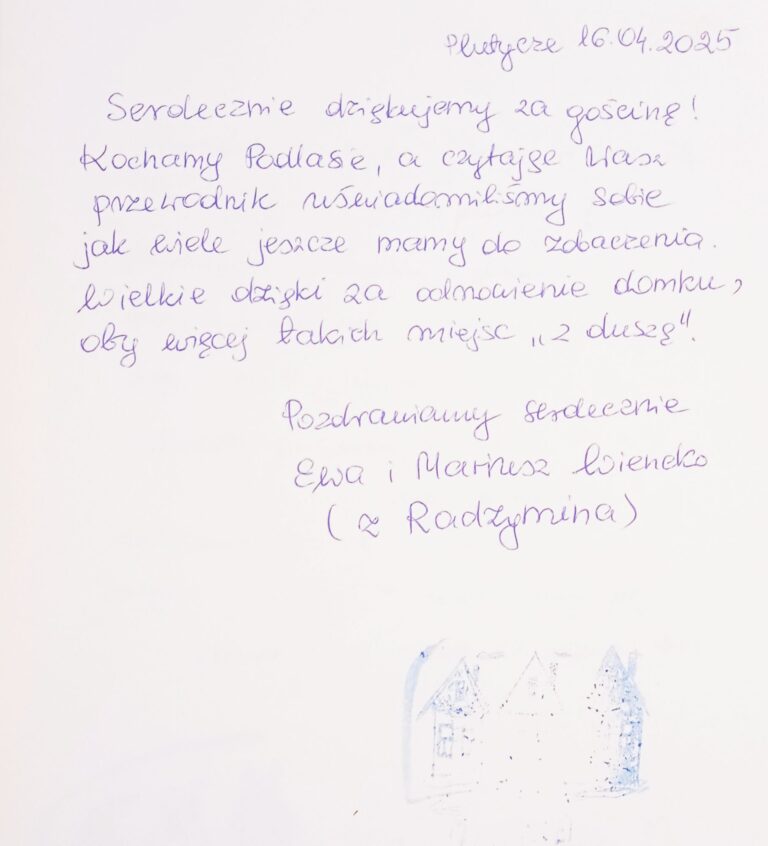 Plutycze 16.04.2025
Serdecznie dziękujemy za gościnę!
Kochamy Podlasie, a czytając Wasz
przewodnik uświadomiliśmy sobie
jak wiele jeszcze mamy do zobaczenia.
Wielkie dzięki za odnowienie domku,
oby więcej takich miejsc „z duszą".
Pozdrawiamy serdecznie
Ewa i Mariusz Wiencko
(z Radzymina)